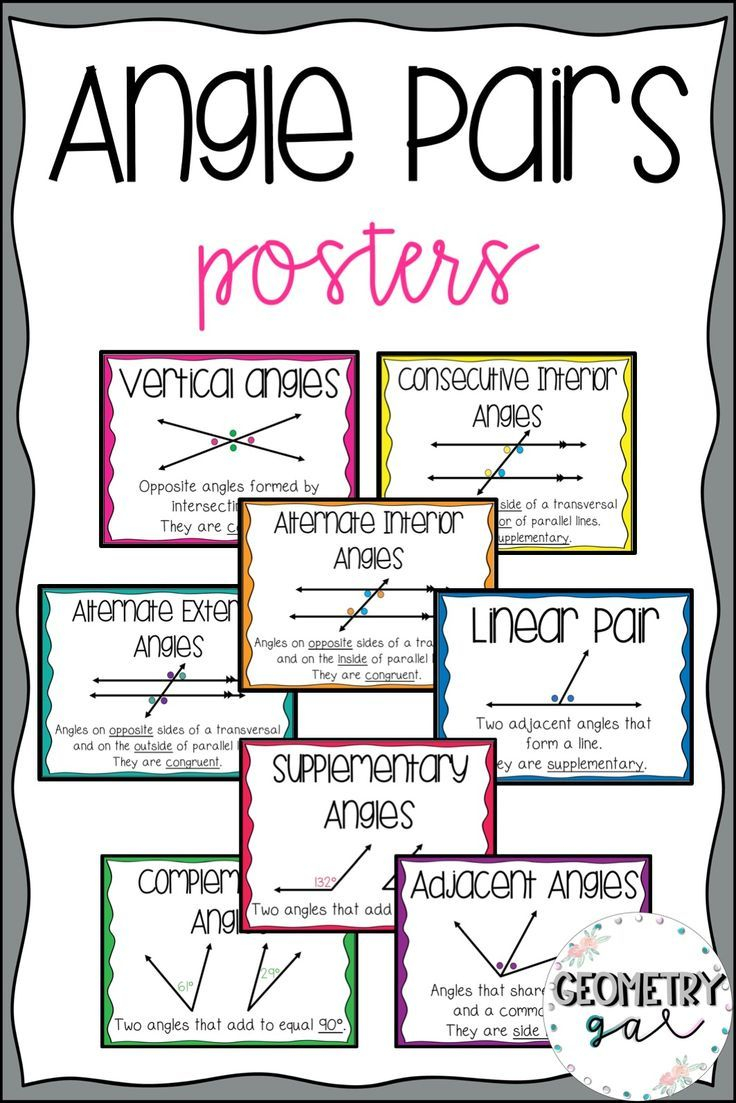 Angle Pairs
posters
Vertical Angles
Opposite angles formed by
They are
Consecutive Interior
Angles
side of a transversal
of parallel lines.
supplementary.
Alternate Interior
Angles
Angles on opposite sides of a
and on the inside of parallel
They are congruent.
Alternate
Angles
Angles on opposite sides of a transversal
and on the outside of parallel
They are congruent.
Linear Pair
Two adjacent angles that
form a line.
are supplementary.
Supplementary
Angles
132°
Two angles that add
61°
29°
Two angles that add to equal 90°.
Adjacent Angles
Angles that share
and a
They are side
GEOMETRY
gal